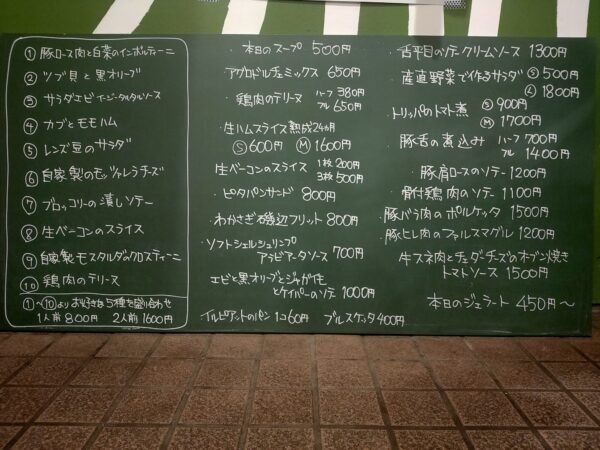 ① 豚ロース肉と白菜のインボルティーニ
② ツブ貝と黒オリーブ
③ サラダエビ イージータルタルソース
④ カブとモモハム
⑤ レンズ豆のサラダ
⑥ 自家製のモッツァレラチーズ
⑦ ブロッコリーの潰しソテー
⑧ 生ベーコンのスライス
⑨ 自家製モスタルダのクロスティーニ
⑩ 鶏肉のテリーヌ
①〜⑩よりお好きな5種を盛り合わせ
1人前 800円 2人前 1600円
・本日のスープ 500円
・アグロドルチェミックス 650円
・鶏肉のテリーヌ ハーフ 380円
フル 650円
・生ハムスライス 熟成24ヵ月
Ⓢ600円 Ⓜ1600円
生ベーコンのスライス 1枚 200円
3枚 500円
・ピタパンサンド 800円
・わかさぎ磯辺フリット 800円
・ソフトシェルシュリンプ
アラビアータソース 700円
エビと黒オリーブとジャガイモ
とケイパーのソテー 1000円
・イルピアットのパン 1コ60円 ブルスケッタ 400円
・舌平目のソテークリームソース 1300円
・産直野菜で作るサラダ Ⓢ500円
Ⓛ1800円
・トリッパのトマト煮 Ⓢ900円
Ⓜ1700円
豚舌の煮込み ハーフ 700円
フル 1400円
・豚肩ロースのソテー 1200円
・骨付鶏肉のソテー 1100円
・豚バラ肉のポルケッタ 1500円
・豚ヒレ肉のファルスマグル 1200円
牛スネ肉とチェダーチーズのオーブン焼き
トマトソース 1500円
本日のジェラート 450円〜